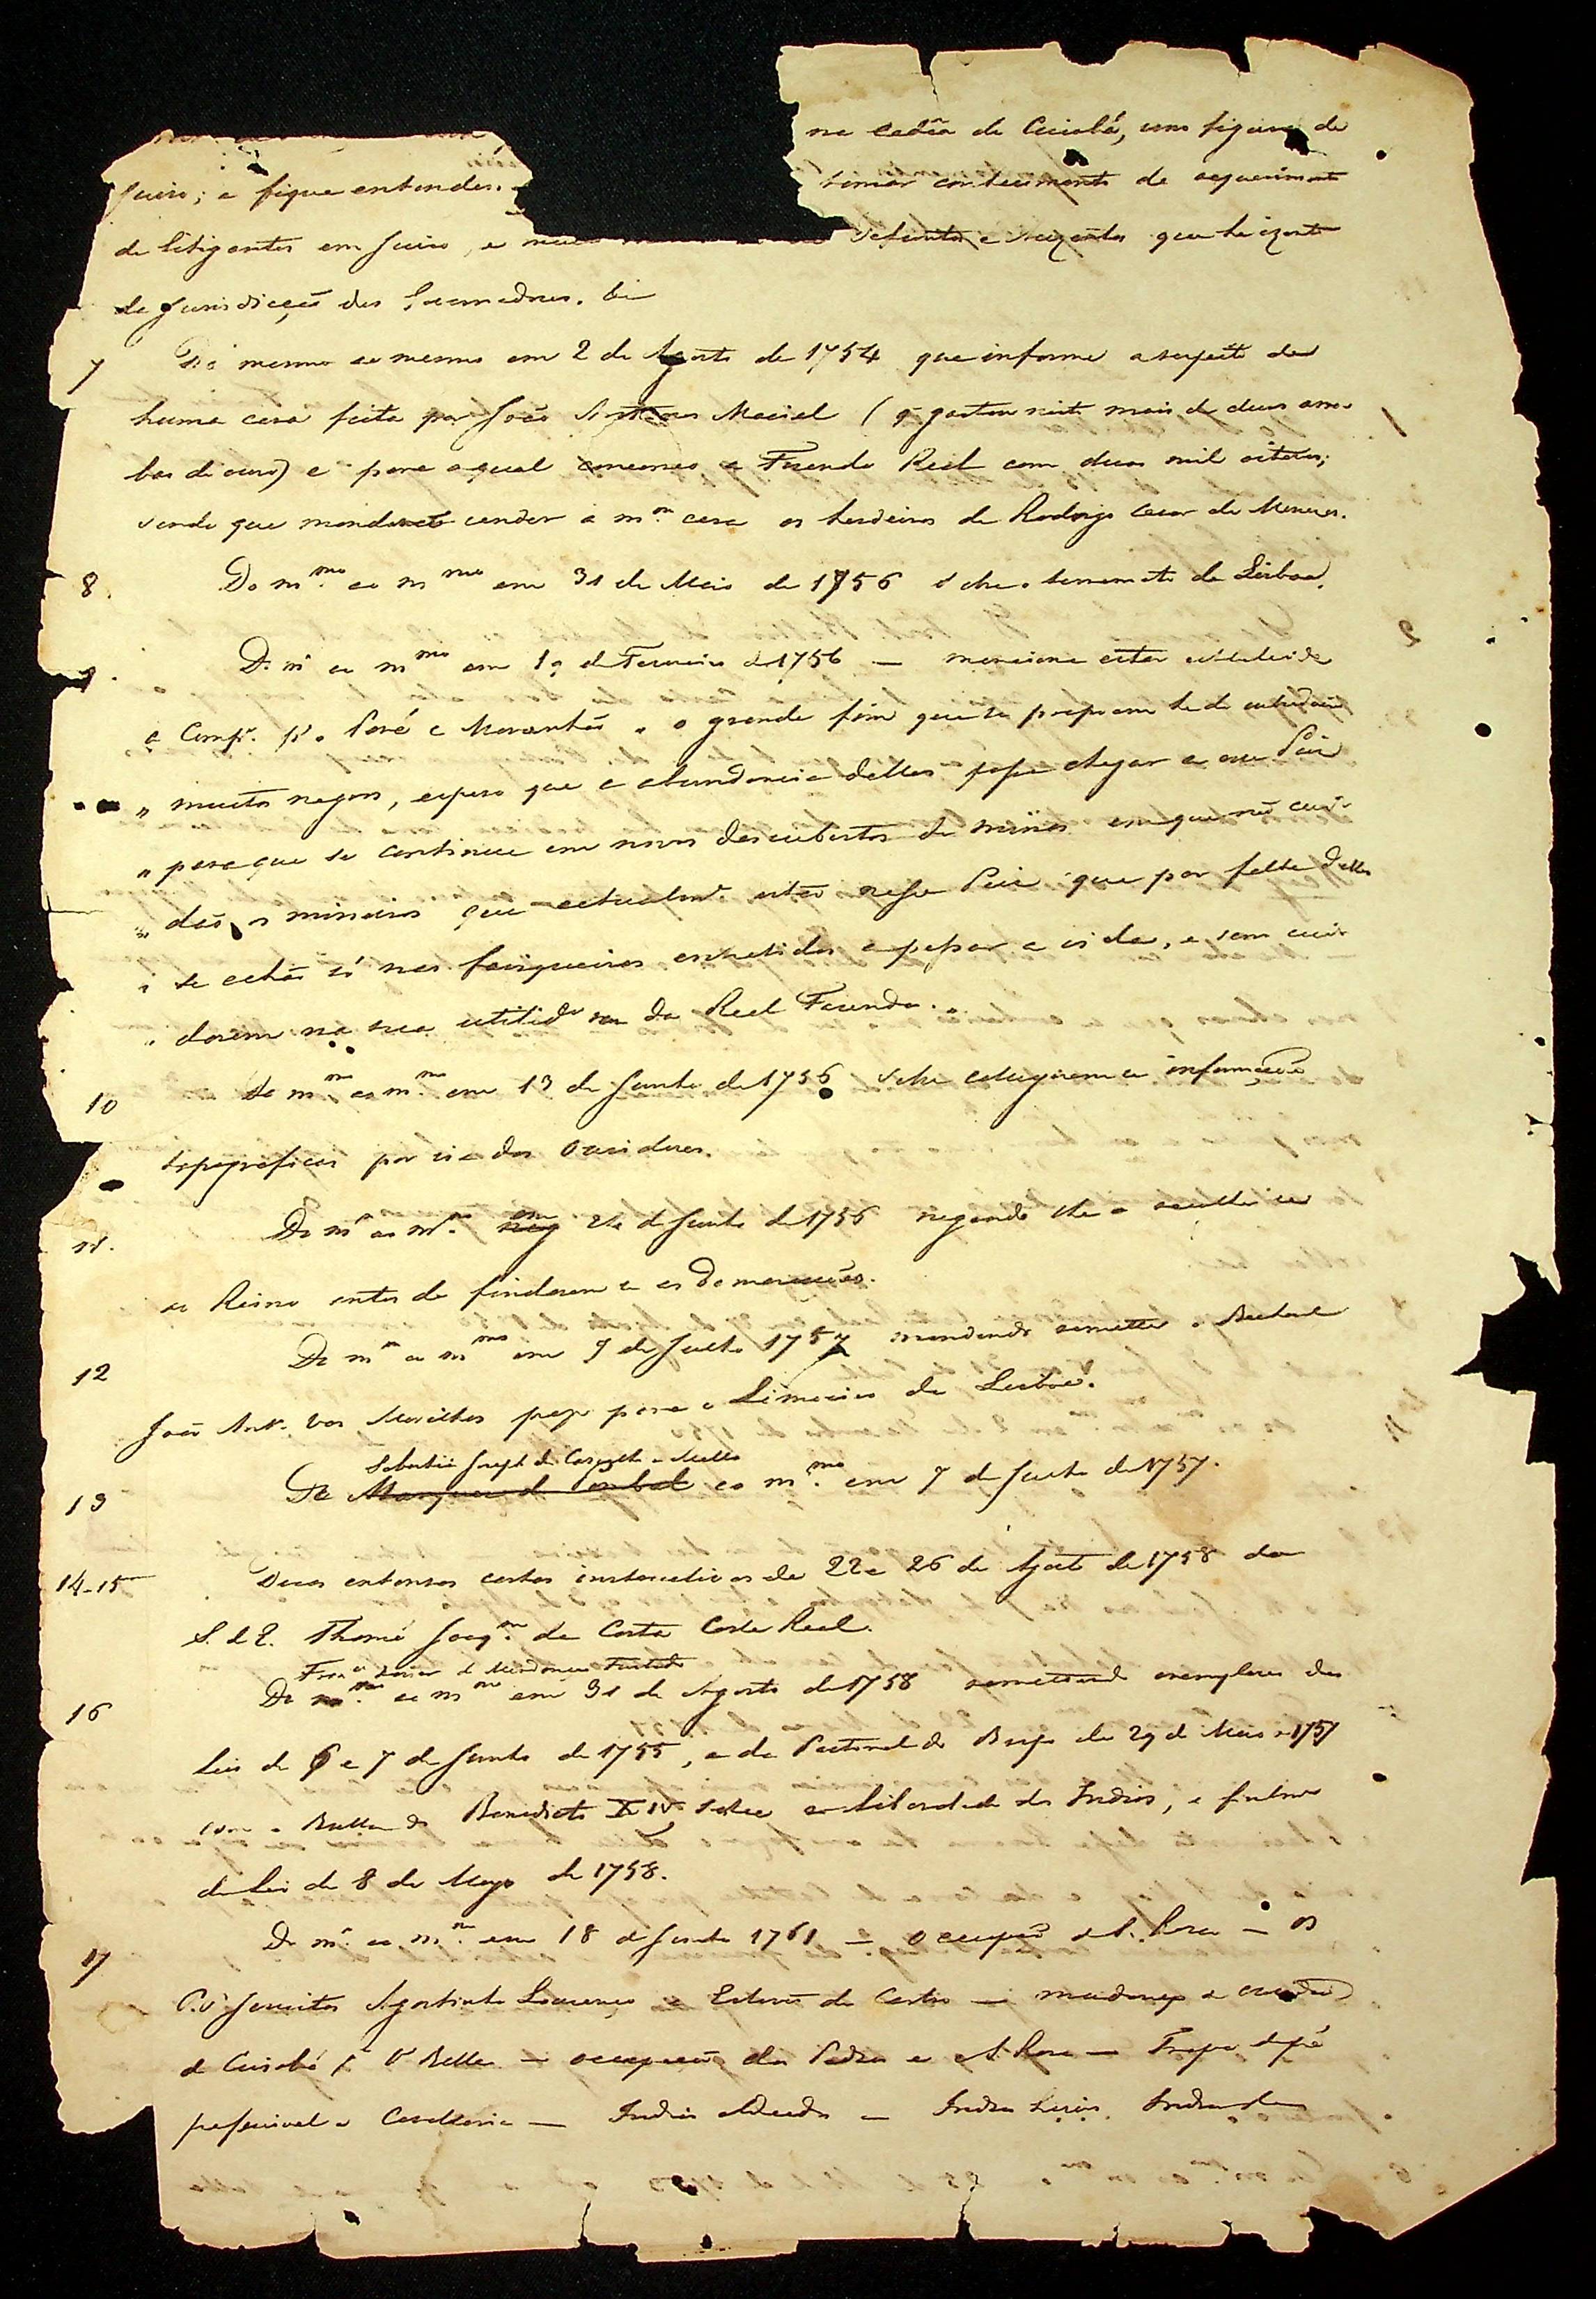 na cadêa de Cuiabá, com figura de
juizo; e fique entenden. tomar conhecimento de requerimento
de litigantes em juizo, e defuntos e auzentes que he izento
da jurisdicção dos Governadores. Ei
7 Do mesmo ao mesmo em 2 de Agosto de 1754 que informe a respeito de
huma casa feita por João Maciel (q gastou nisto mais de duas arro
bas de ouro) e para a qual concorreo a Fazenda Real com duas mil oitavas;
sendo que mandarão vender a mma casa os herdeiros de Rodrigo Cesar de Menezes.
8. Do mmo ao mmo em 31 de Maio de 1756 sobre o terremoto de Lisboa.
9. Do mo ao mmo em 19 de Fevereiro de 1756 — menciona estar estabelecida
a Compa. pa o Pará e Maranhão „ o grande fim que se propoem he de introduzir
„ muitos negros, espero que a abundancia delles possa chegar a esse Paiz
„ para que se continue em novos descubertos de minas em que não cui-
„ dão os mineiros que actualmte. estão nesse Paiz que por falta delles
„ se achão só nas faisqueiras entretidos a passar a vida, e sem cui-
„ darem na sua utilide na da Real Fazenda. „
10 Do mmo ao mmo em 13 de Junho de 1756 sobre coligirem-se informações
topograficas por via dos Ouvidores.
11. Do mo ao mmo em 26 de Junho de 1756 negando-lhe o recolher-se
ao Reino antes de findarem-se as Demarcações.
12 Do mo ao mmo em 9 de Julho 1757 mandando remetter o Bacharel
João Anto. Vaz Morilhas prezo para o Limoeiro de Lisboa.
Sebastião Joseph de Carvalho e Mello
13 De Marquez de Pombal ao mmo em 7 de Julho de 1757.
14-15 Duas extensas cartas instructivas de 22 e 26 de Agosto de 1758 do
S. d E. Thomé Joaqm. da Costa Corte Real.
Franco Xavier de Mendonça Furtado
16 De mmo ao mmo em 31 de Agosto de 1758 remettendo exemplares das
Leis de 6 e 7 de Junho de 1755, e da Pastoral do Bispo de 29 de Maio de 1757
com a Bulla de Benedicto XIV sobre a liberdade dos Indios, e finalmte
da Lei de 8 de Mayo de 1758.
17 Do mo ao mmo em 18 de Junho 1761 — Occupação de S. Rosa — os
P.es Jesuitas Agostinho Lourenço e Estevão de Castro — mudança da ouvidoria
de Cuiabá pa Va Bella — occupação das Pedras e S. Rosa — Tropa de pé
possivel a Cavallaria — Indios aldeados — India Luiza